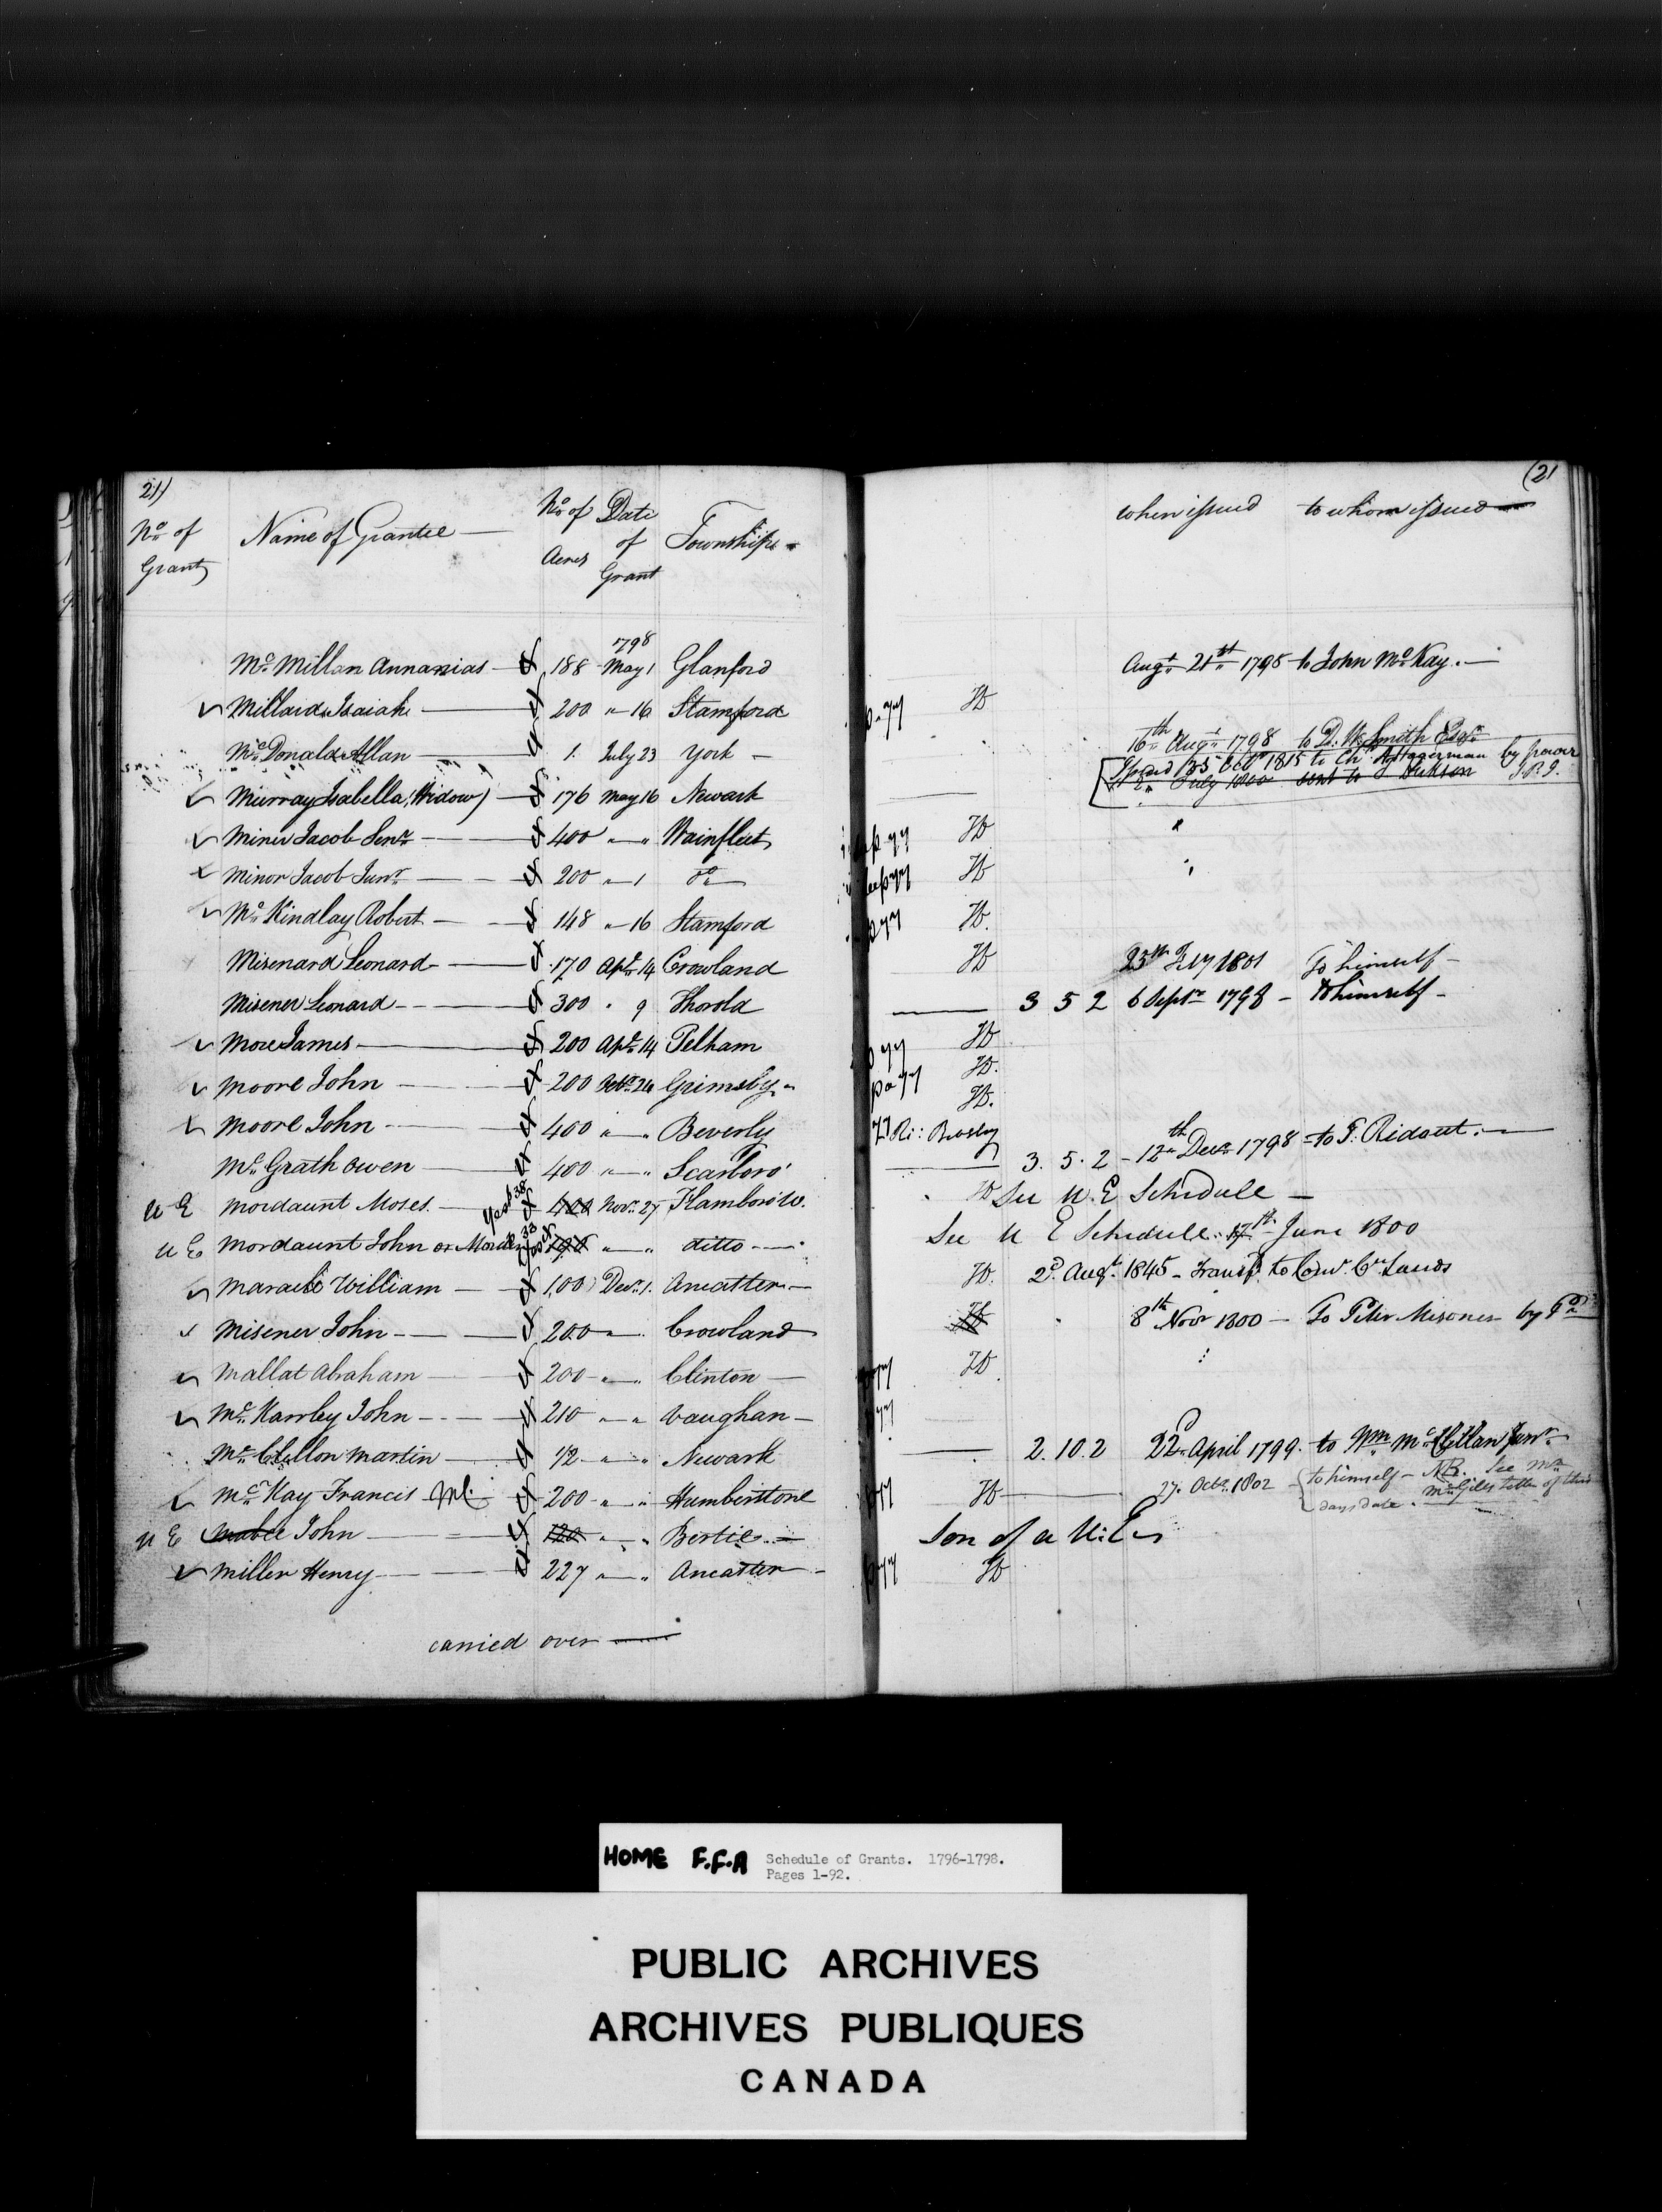 21)
No. of Grant
Name of Grantee
No. of Acres
Date of Grant
Townships
1798
Mc. Millan Annanias 188 May 1 Glanford
Millard Isaiah 200 " 16 Stamford
Mc. Donald Allan 1 July 23 York
Murray Isabella (Widow) 176 May 16 Newark
Miner Jacob Senr. 400 " " Wainfleet
Minor Jacob Junr. 200 " 1 do
Mc. Kindlay Robert 148 " 16 Stamford
Misenard Leonard 170 Apl. 14 Crowland
Misener Leonard 300 " 9 Thorold
More James 200 Apl. 14 Pelham
Moore John 200 Grimsby
Moore John 400 " " Beverly
Mc. Grath Owen 400 " " Scarboro'
U E Mordaunt Moses Novr. 27 Flamboro' W.
U E Mordaunt John or Morden " " ditto
William 100 Decr. 1. Ancaster
Misener John 200 " Crowland
Mallat Abraham 200 " " Clinton
John 210 " " Vaughan
Mc. Clellon Martin 1/2 " " Newark
Mc. Kay Francis 200 " " Humberstone
U E Mabee John 120 " " Bertie
Miller Henry 227 " " Ancaster
carried over
(21
when issued to whom issued
Augt. 21st 1798 to John Mc. Kay.
16th Augt. 1798 to D. W. Smith Esqr.
25 Octr. 1815 to Hagerman by power
July 1800
23rd Feby 1801 To himself
3 5 2 6 Septr. 1798 To himself
3. 5. 2 12th Decr. 1798 to T. Ridout.
See U. E Schedule
See U E Schedule 17th June 1800
2d. Augt. 1845 Transfd. to
8th Novr 1800 To Peter Misener by
2. 10. 2 22d April 1799. to Wm. Mc. Clellan Junr.
27. Octr. 1802 to himself - NB. See Mr.
Mc. Gills letter of this
days date.
Son of a U:E
HOME F.F.A
Schedule of Grants. 1796-1798.
Pages 1-92.
PUBLIC ARCHIVES
ARCHIVES PUBLIQUES
CANADA